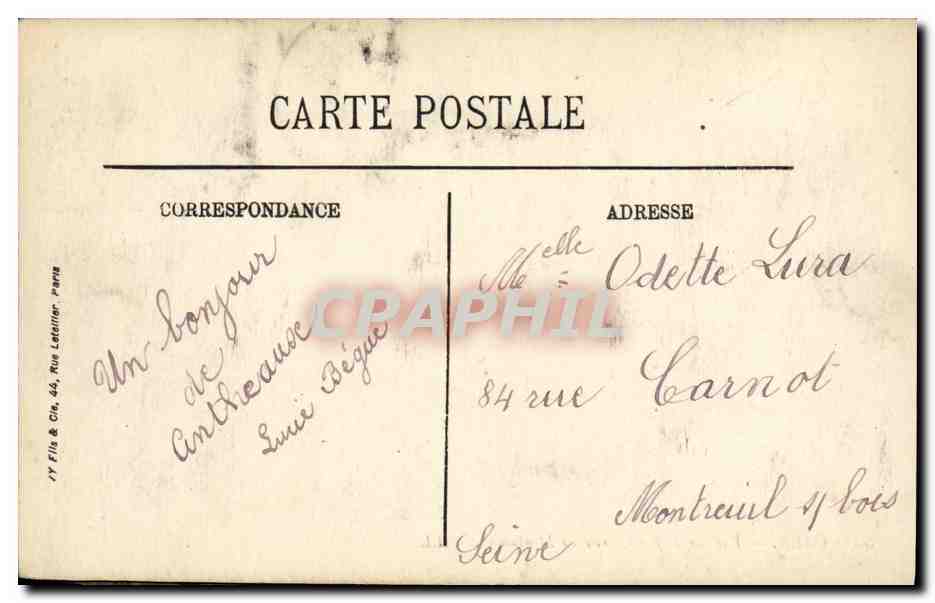 CARTE POSTALE
CORRESPONDANCE
ADRESSE
Un bonjour
de
Antheaux
Lucie Bégue
Melle Odette Lura
84 rue Carnot
Montreuil s/ bois
Seine
CPARHIL
Fils & Cie, 44, Rue Letellier, Paris